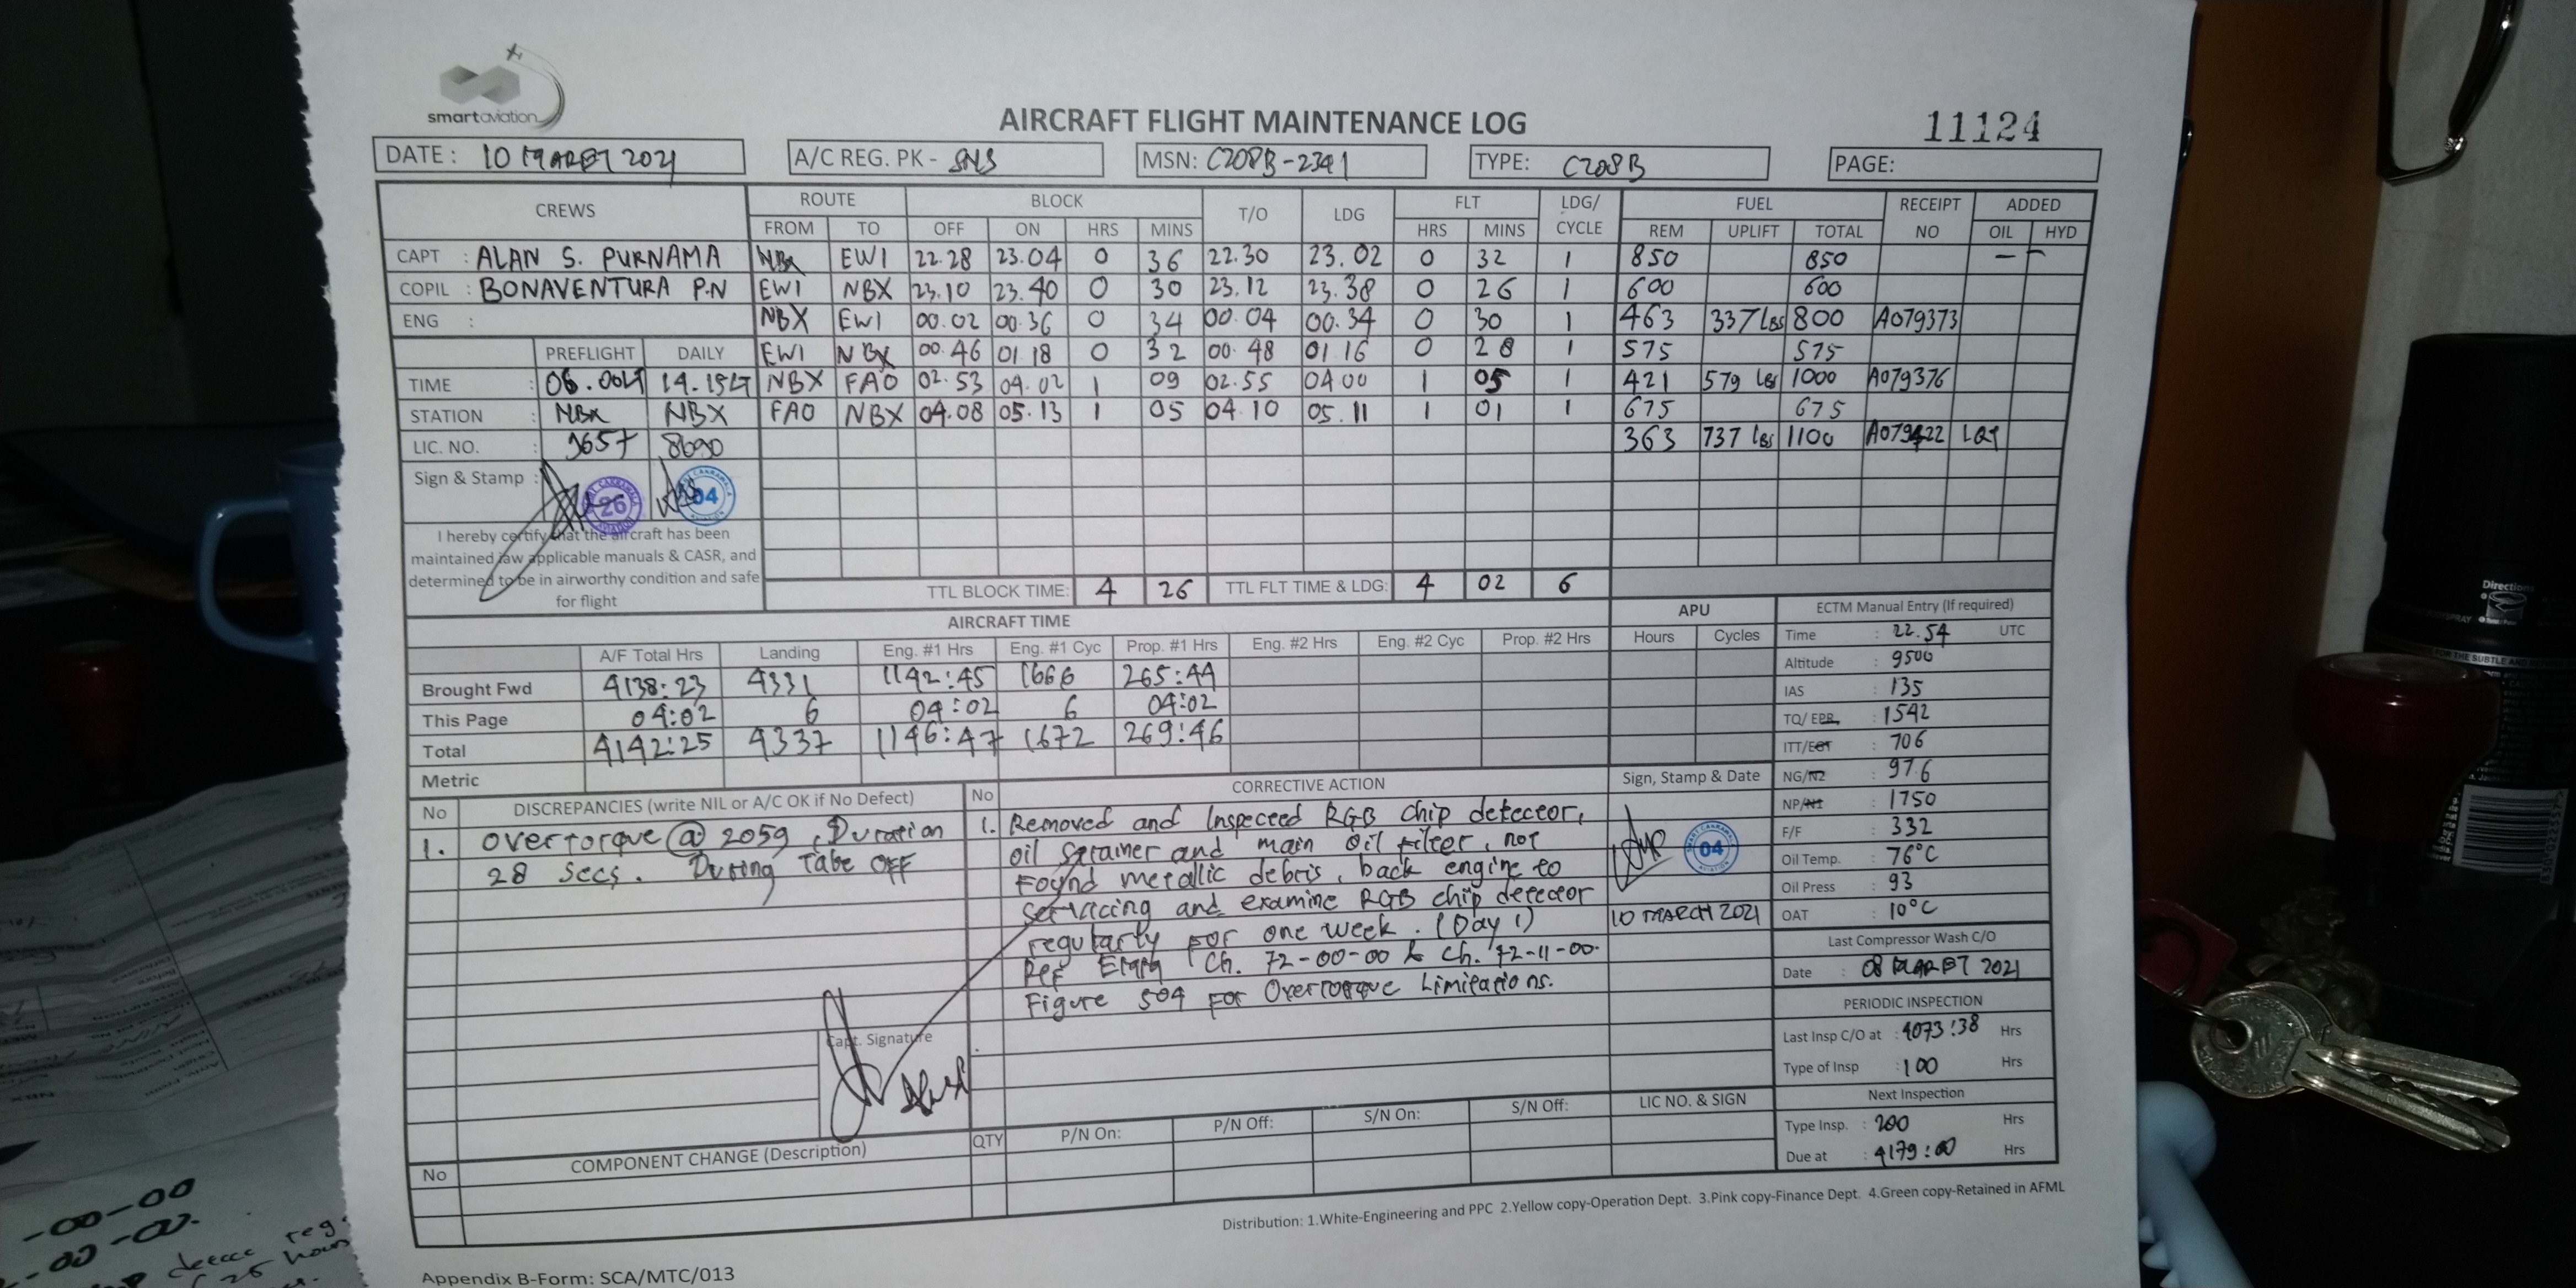 smartaviation
AIRCRAFT FLIGHT MAINTENANCE LOG
11124
DATE: 10 MARET 2021 A/C REG. PK - SNS MSN: C208B-2341 TYPE: C208B PAGE:
CREWS ROUTE BLOCK T/O LDG FLT LDG/ CYCLE FUEL RECEIPT NO ADDED
FROM TO OFF ON HRS MINS HRS MINS REM UPLIFT TOTAL OIL HYD
CAPT : ALAN S. PURNAMA NBX EWI 22.28 23.04 0 36 22.30 23.02 0 32 1 850 850 —
COPIL : BONAVENTURA P.N EWI NBX 23.10 23.40 0 30 23.12 23.38 0 26 1 600 600
ENG : NBX EWI 00.02 00.36 0 34 00.04 00.34 0 30 1 463 337 Lbs 800 A079373
PREFLIGHT DAILY EWI NBX 00.46 01.18 0 32 00.48 01.16 0 28 1 575 575
TIME : 06.00LT 14.15LT NBX FAO 02.53 04.02 1 09 02.55 04.00 1 05 1 421 579 lbs 1000 A079376
STATION : NBX NBX FAO NBX 04.08 05.13 1 05 04.10 05.11 1 01 1 675 675
LIC. NO. : 9657 8690 363 737 lbs 1100 A079422
Sign & Stamp : 26 04
I hereby certify that the aircraft has been
maintained iaw applicable manuals & CASR, and
determined to be in airworthy condition and safe
for flight
TTL BLOCK TIME: 4 26 TTL FLT TIME & LDG: 4 02 6
AIRCRAFT TIME APU
A/F Total Hrs Landing Eng. #1 Hrs Eng. #1 Cyc Prop. #1 Hrs Eng. #2 Hrs Eng. #2 Cyc Prop. #2 Hrs Hours Cycles
Brought Fwd 4138:23 4331 1142:45 1666 265:44
This Page 04:02 6 04:02 6 04:02
Total 4142:25 4337 1146:47 1672 269:46
Metric
ECTM Manual Entry (If required)
Time : 22.54 UTC
Altitude : 9500
IAS : 135
TQ/EPR : 1542
ITT/EGT : 706
NG/N2 : 97.6
NP/N1 : 1750
F/F : 332
Oil Temp. : 76°C
Oil Press : 93
OAT : 10°C
Last Compressor Wash C/O
Date : 08 MARET 2021
PERIODIC INSPECTION
Last Insp C/O at : 4073:38 Hrs
Type of Insp : 100 Hrs
Next Inspection
Type Insp. : 200 Hrs
Due at : 4179:00 Hrs
No DISCREPANCIES (write NIL or A/C OK if No Defect)
1. Overtorque @ 2059, Duration
28 Secs. During Take OFF
Capt. Signature
No CORRECTIVE ACTION Sign, Stamp & Date
1. Removed and Inspected RGB chip detector,
oil strainer and main oil filter, not
found metallic debris, back engine to
servicing and examine RGB chip detector
regularly for one week. (Day 1)
Ref EMM Ch. 72-00-00 & Ch. 72-11-00.
Figure 504 for Overtorque Limitations.
04
10 MARCH 2021
No COMPONENT CHANGE (Description) QTY P/N On: P/N Off: S/N On: S/N Off: LIC NO. & SIGN
Distribution: 1.White-Engineering and PPC 2.Yellow copy-Operation Dept. 3.Pink copy-Finance Dept. 4.Green copy-Retained in AFML
Appendix B-Form: SCA/MTC/013
-00-00
Directions